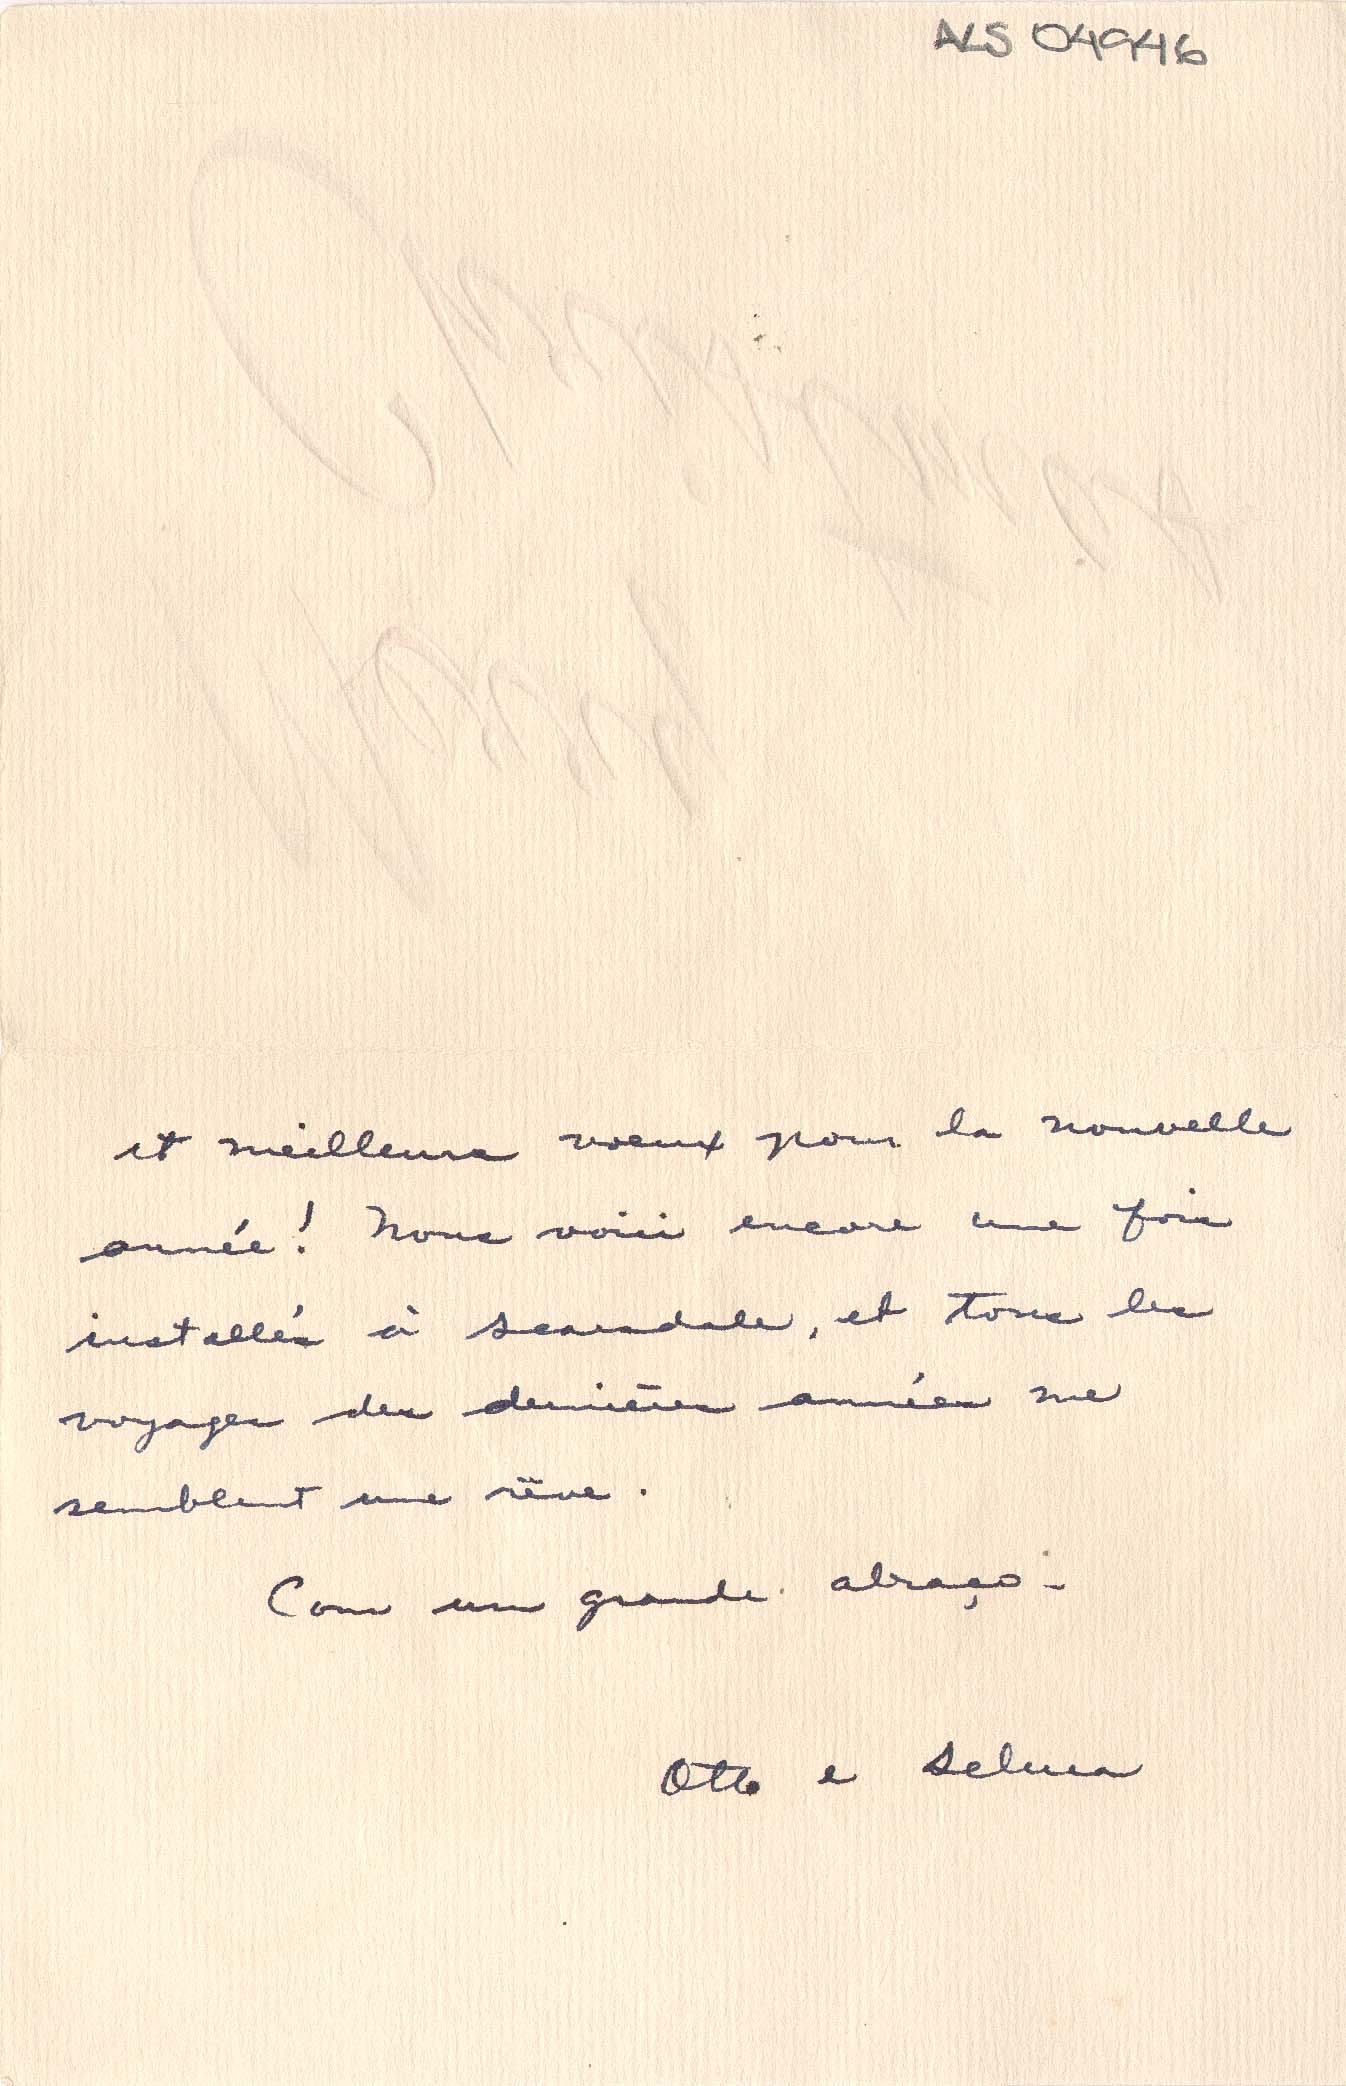 ALS 04946
et meilleurs voeux pour la nouvelle
année! Nous voici encore une fois
installés à Scarsdale, et tous les
voyages des dernières années me
semblent une rêve.
Com um grande abraço-
Otto e Selma